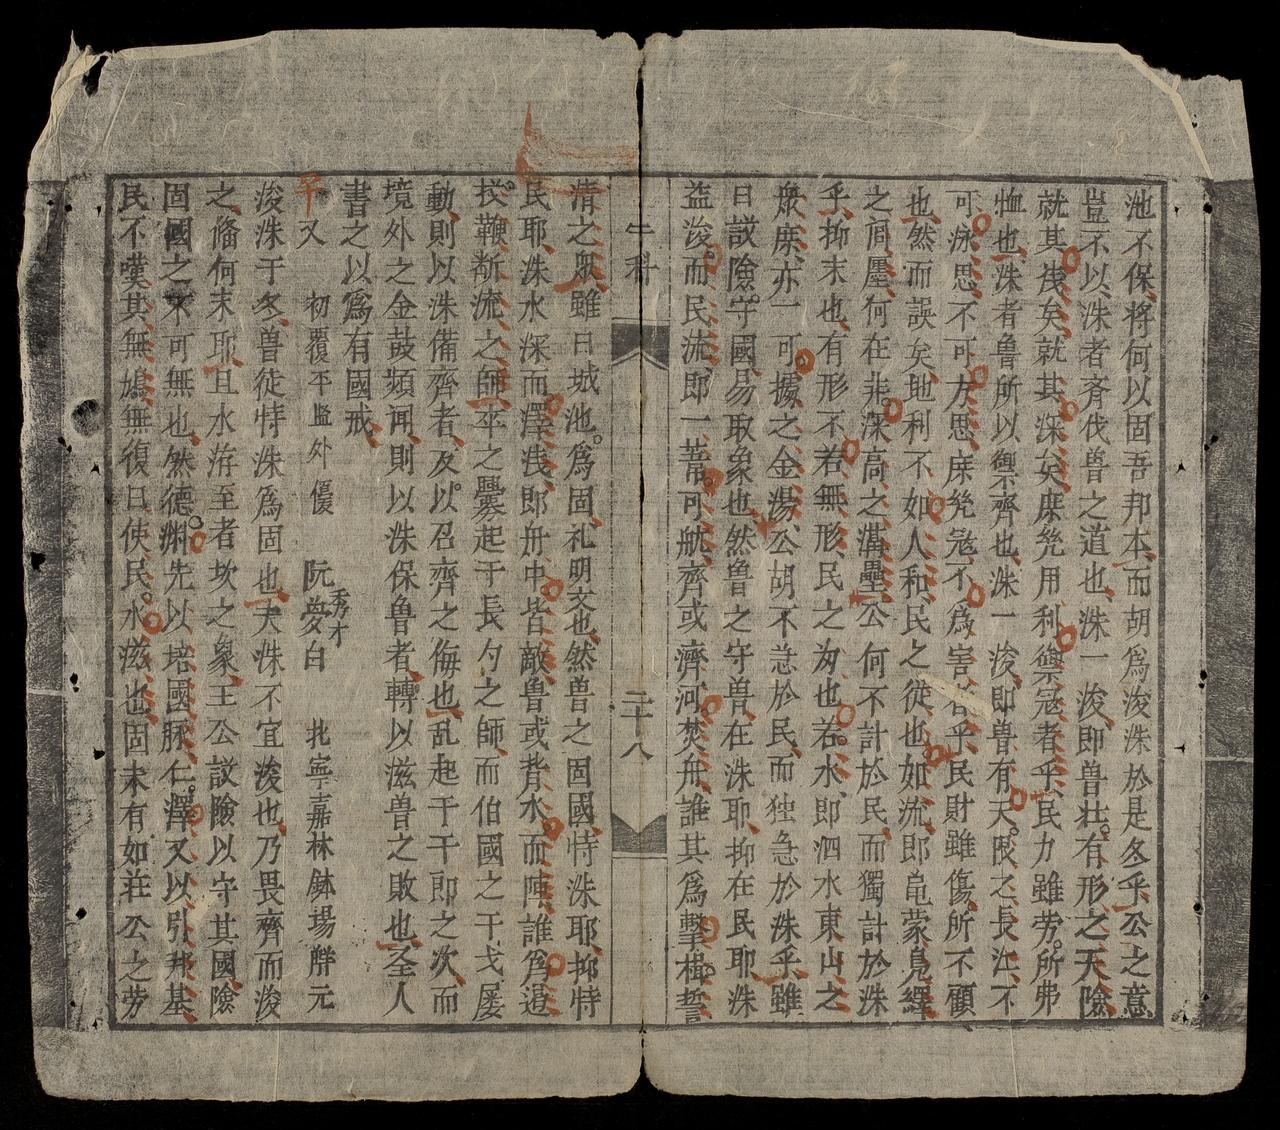 池不保將何以固吾邦本而胡爲浚洙於是冬乎公之意
豈不以洙者齊伐兽之道也洙一浚即兽壯有形之天險
就其浅矣就其深矣庶㡬用利禦寇者乎民力雖劳所弗
恤也洙者鲁所以禦齊也洙一浚即兽有天限之長江不
可泳思不可方思庶㡬寇不爲害者乎民財雖傷所不顧
也然而誤矣地利不如人和民之從也如流即龟蒙凫繹
之間屢何在非深高之溝壘公何不計於民而獨計於洙
乎抑末也有形不若無形民之为也若水即泗水東山之
衆庶亦一可據之金湯公胡不急於民而独急於洙乎雖
曰設險守國易取象也然鲁之守兽在洙耶抑在民耶洙
益浚而民流即一葦可航齊或濟河焚舟誰其爲擊楫誓
清之衆雖曰城池爲固礼明文也然兽之固國恃洙耶抑恃
民耶洙水深而澤浅即舟中皆敵鲁或背水而陣誰爲遏
投鞭斷流之師卒之釁起于長勺之師而伯國之干戈屡
動則以洙備齊者及以召齊之侮也乱起于干即之次而
境外之金鼓頻闻則以洙保鲁者轉以滋兽之敗也圣人
書之以爲有國戒
又 初覆平監外優 阮夢白 秀才 北寧嘉林鉢場觧元
浚洙于冬兽徒恃洙爲固也夫洙不宜浚也乃畏齊而浚
之俻何末耶且水洊至者坎之象王公設險以守其國險
固國之不可無也然德渊先以培國脉仁澤又以引邦基
民不嘆其無鳩無復曰使民水滋也固未有如莊公之劳
二科
二十八